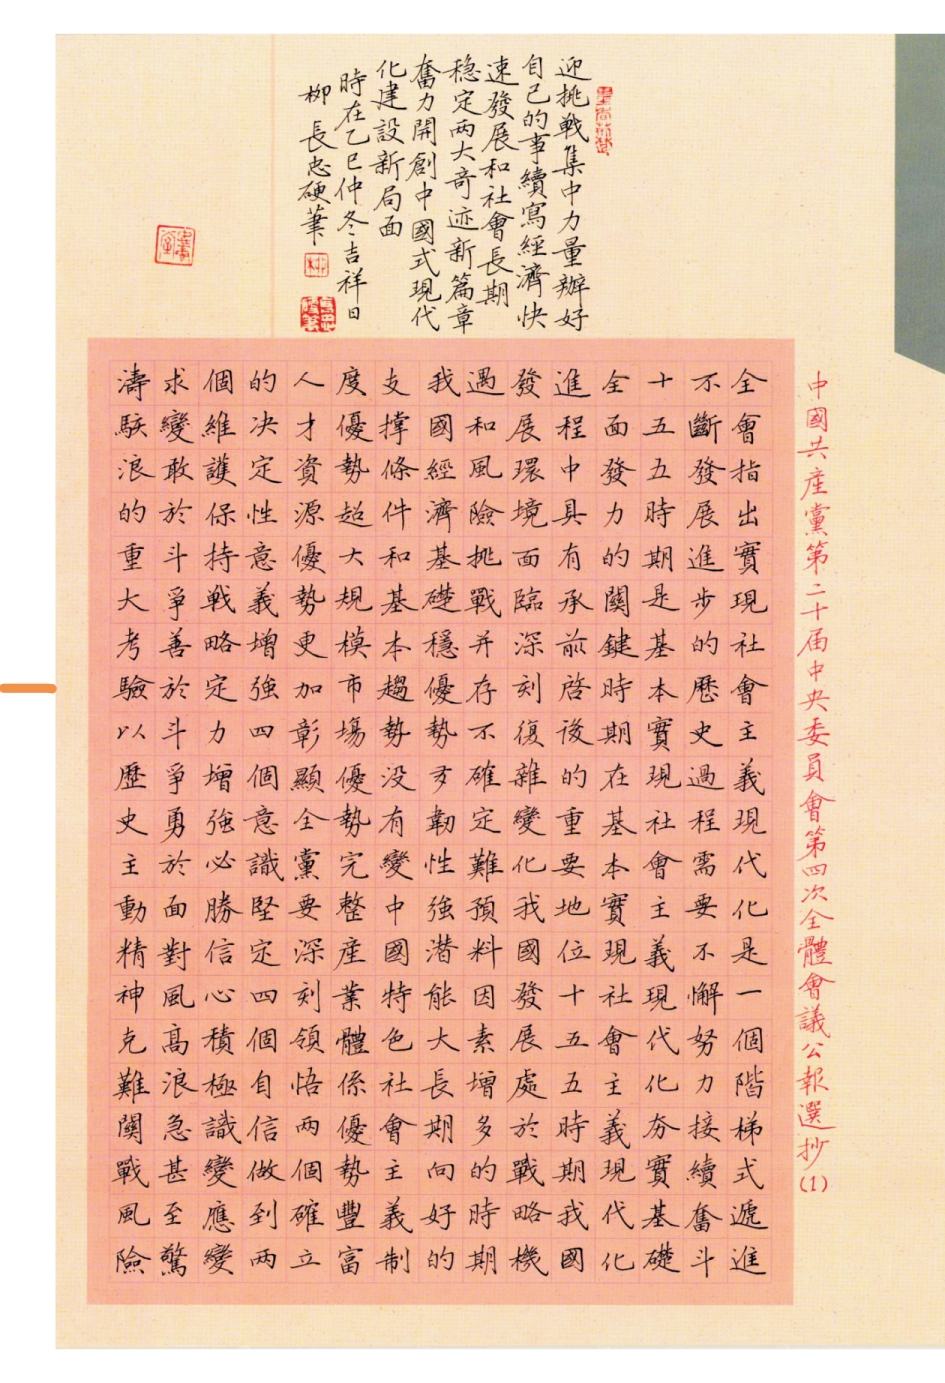 中國共産黨第二十届中央委員會第四次全體會議公報選抄(1)
全會指出實現社會主義現代化是一個階梯式遞進
不斷發展進步的歷史過程需要不懈努力接續奮斗
十五五時期是基本實現社會主義現代化夯實基礎
全面發力的關鍵時期在基本實現社會主義現代化
進程中具有承前啓後的重要地位十五五時期我國
發展環境面臨深刻復雜變化我國發展處於戰略機
遇和風險挑戰并存不確定難預料因素增多的時期
我國經濟基礎穩優勢多韌性強潜能大長期向好的
支撑條件和基本趨勢没有變中國特色社會主義制
度優勢超大規模市場優勢完整産業體係優勢豐富
人才資源優勢更加彰顯全黨要深刻領悟兩個確立
的决定性意義增強四個意識堅定四個自信做到兩
個維護保持戰略定力增強必勝信心積極識變應變
求變敢於斗爭善於斗爭勇於面對風高浪急甚至驚
濤駭浪的重大考驗以歷史主動精神克難關戰風險
迎挑戰集中力量辦好
自己的事續寫經濟快
速發展和社會長期
穩定兩大奇迹新篇章
奮力開創中國式現代
化建設新局面
時在乙巳仲冬吉祥日
柳長忠硬筆